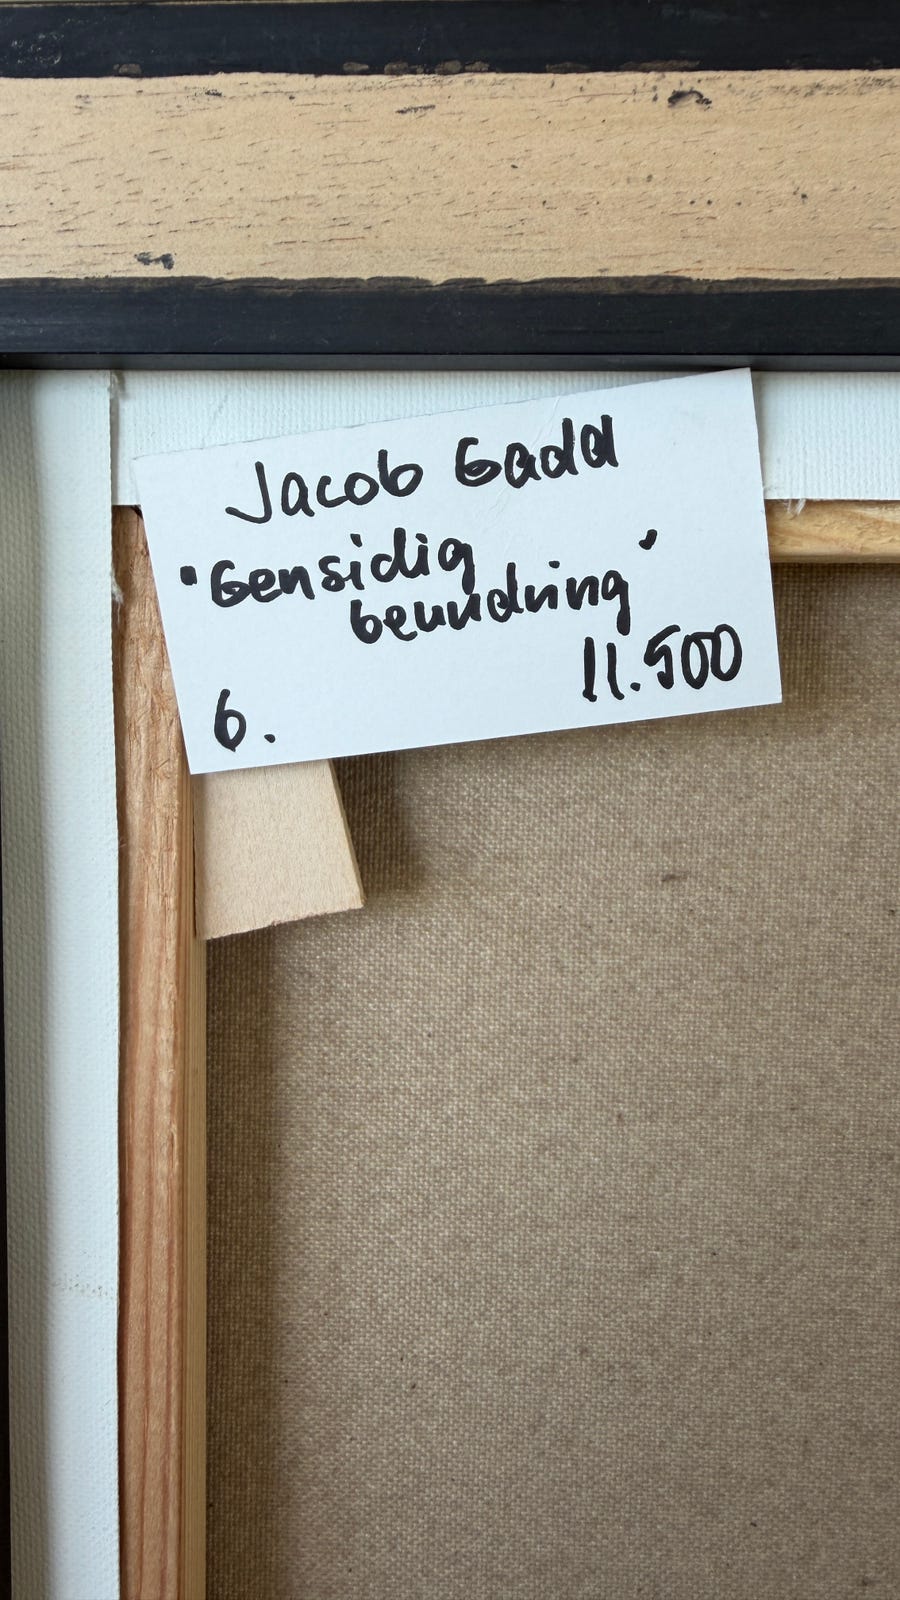 Jacob Gadd
"Gensidig
beundring"
11.500
6.